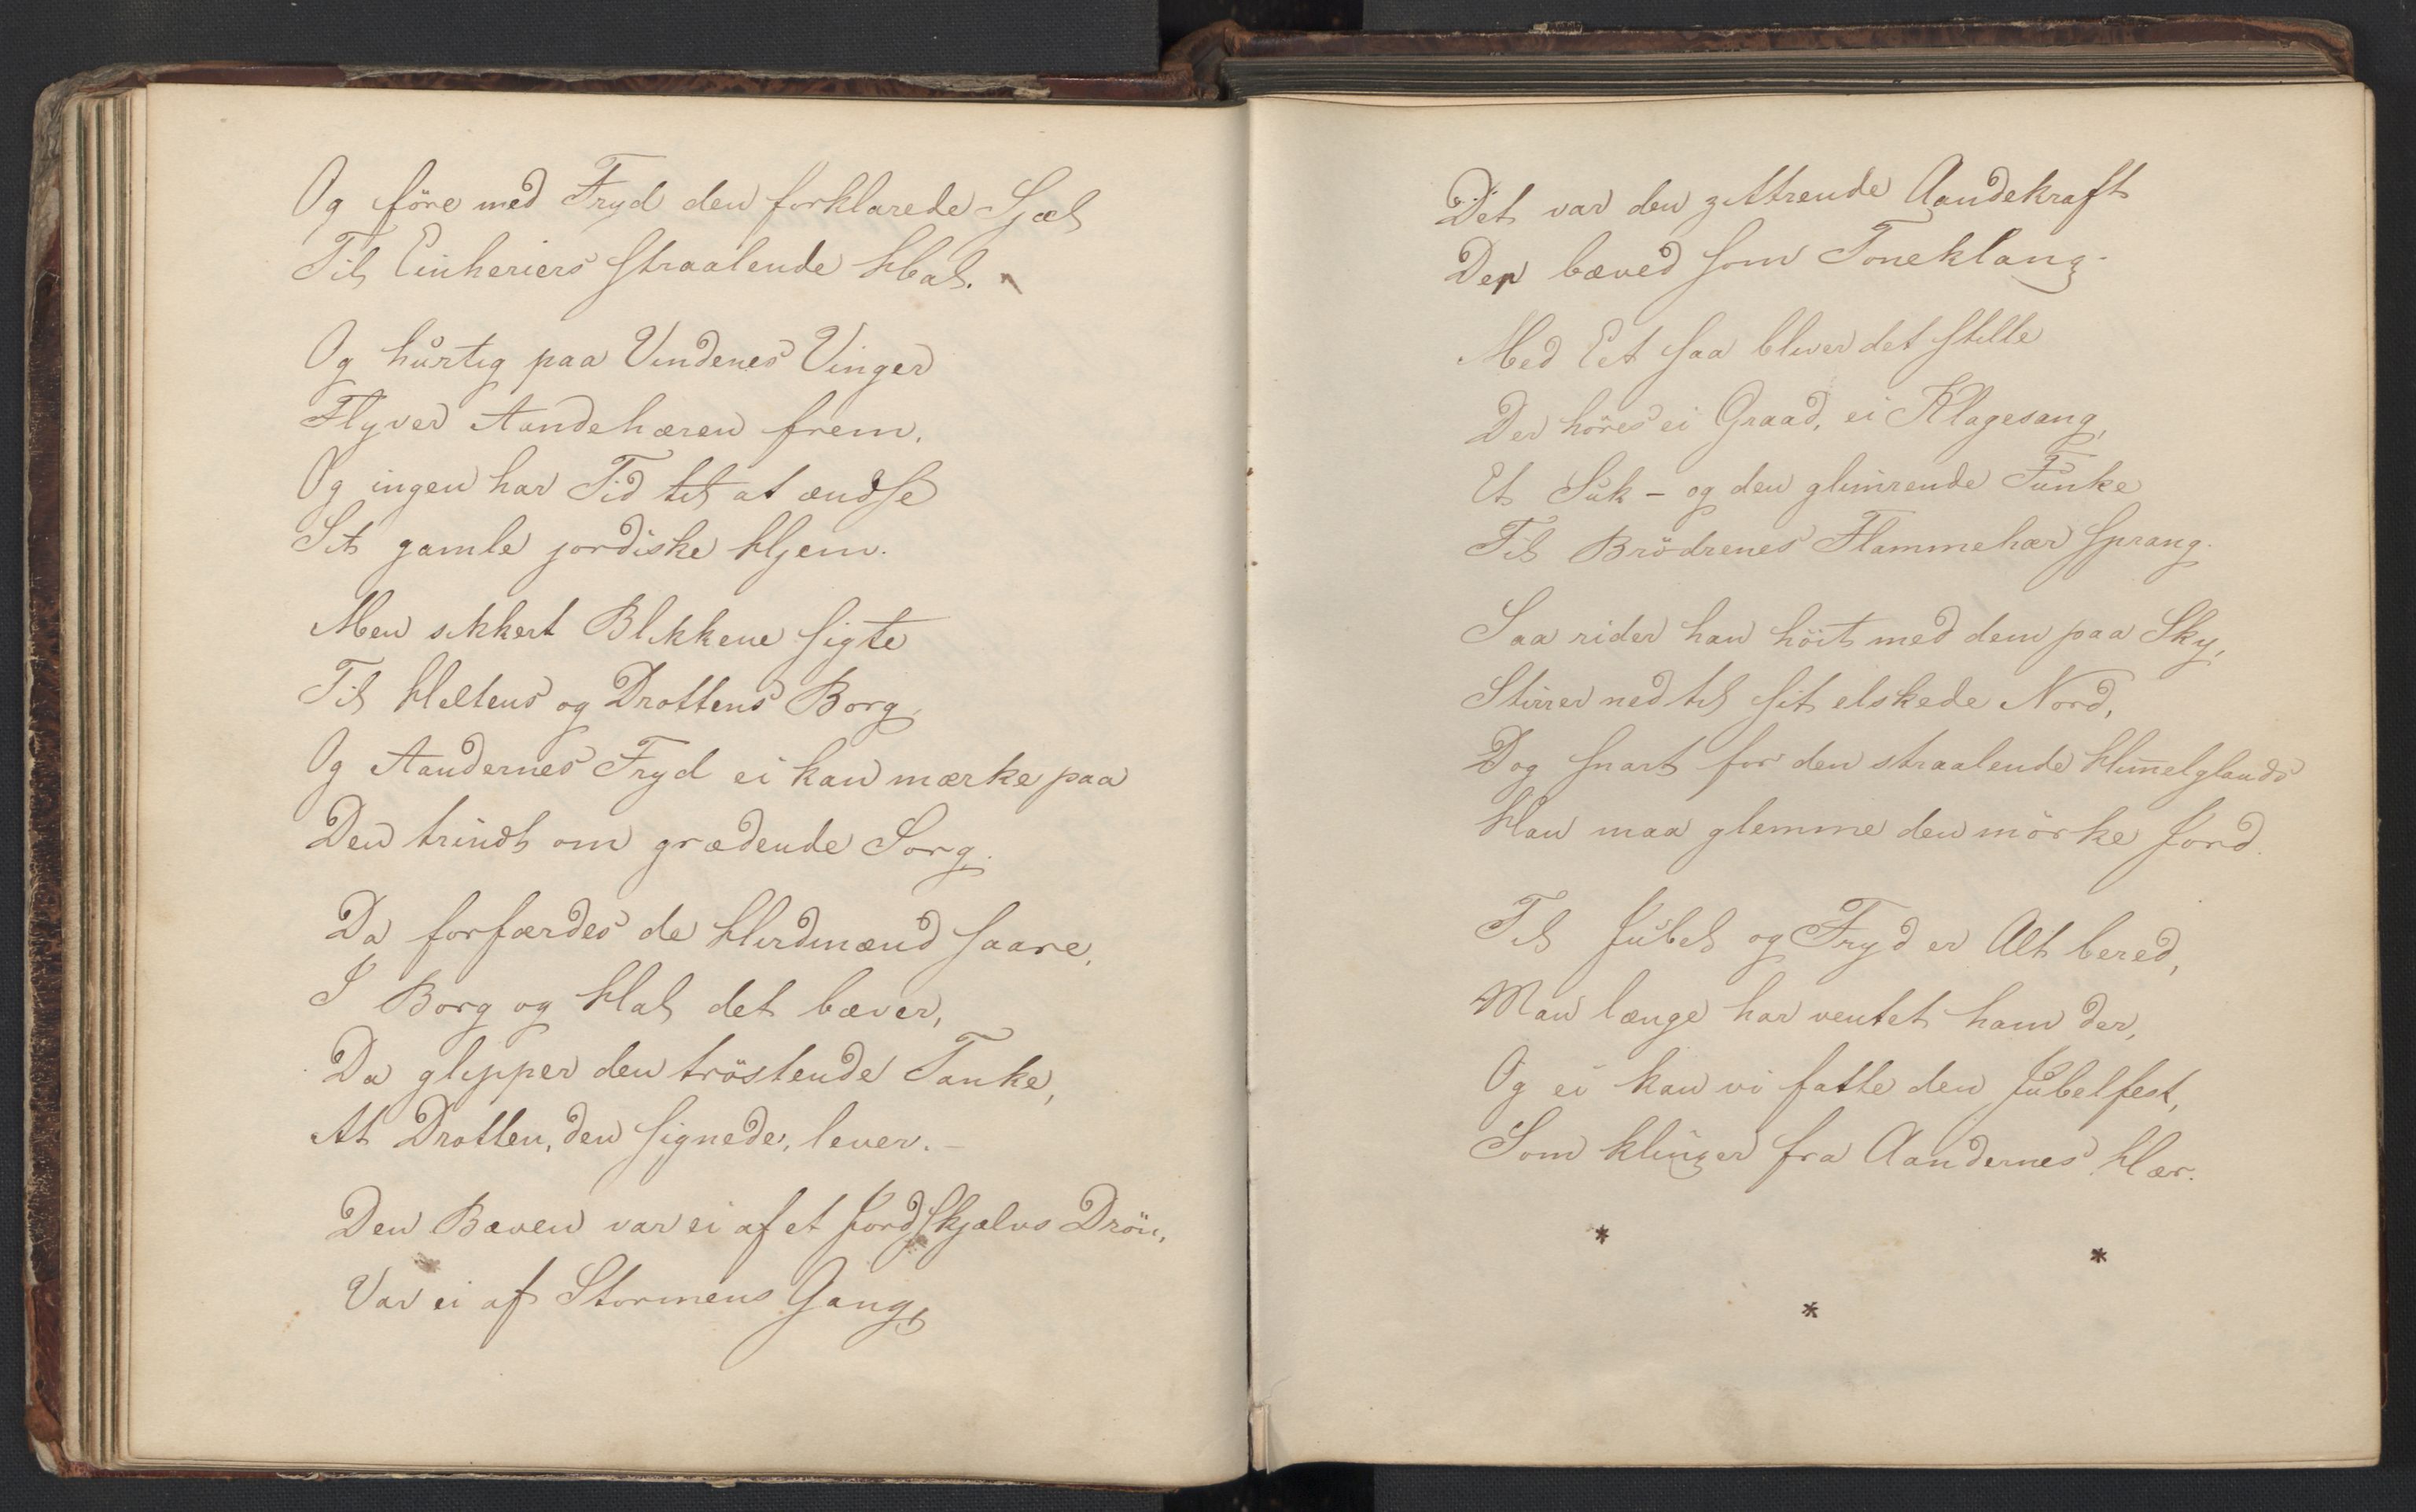 Og före med Fryd den forklarede Sjæl
Til Einheriers straalende Hal.
Og hurtig paa Vindenes Vinger
Flyver Aandehæren frem.
Og ingen har Tid til at ændse
Sit gamle jordiske Hjem.
Men sikkert Blikkene sigte
Til Heltens og Drottens Borg,
Og Aandernes Fryd ei kan mærke paa
Den trindt om grædende Sorg.
Da forfærdes de Hirdmænd saare,
I Borg og Hal det bæver,
Da glipper den tröstende Tanke,
At Drotten, den signede, lever. –
Den Bæven var ei af et Jordskjælvs Drön,
Var ei af Stormens Gang,
Det var den zittrende Aandekraft
Der bæved som Toneklang.
Med Eet saa bliver det stille
Der höres ei Graad, ei Klagesang,
Et Suk – og den glimrende Funke
Til Brödrenes Flammehær sprang.
Saa rider han höit med dem paa Sky,
Stirrer ned til sit elskede Nord,
Dog snart for den straalende Him̅elglands
Han maa glemme den mörke Jord.
Til Jubel og Fryd er Alt bered,
Man længe har ventet ham der,
Og ei kan vi fatte den Jubelfest,
Som klinger fra Aandernes Hær.
* *
*